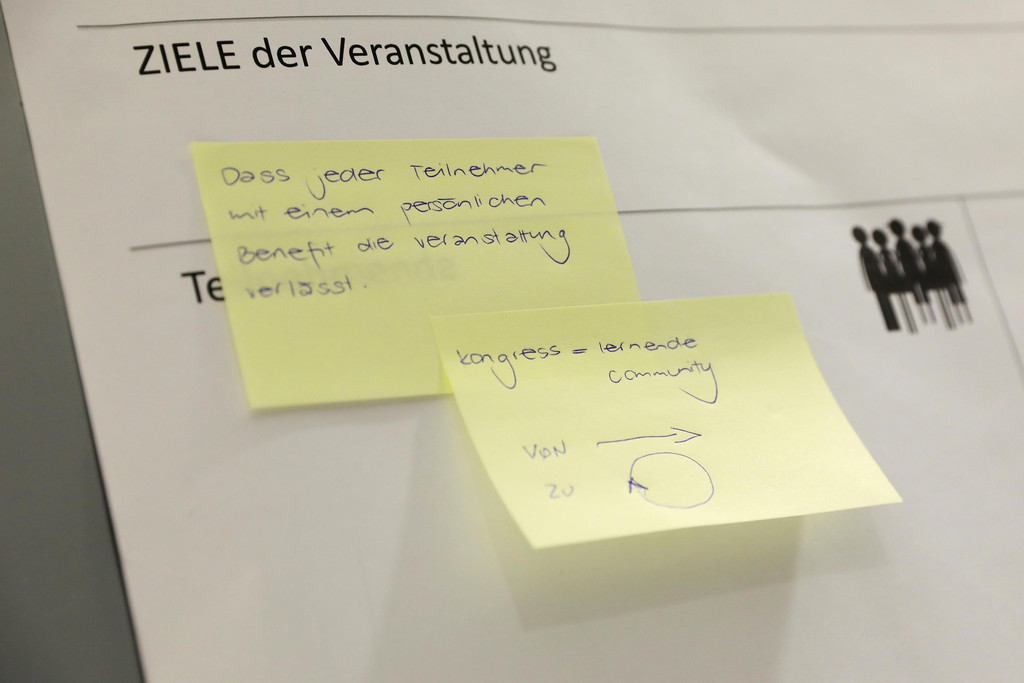 ZIELE der Veranstaltung
Dass jeder Teilnehmer
mit einem persönlichen
Benefit die Veranstaltung
verlässt.
Te
Kongress = lernende
community
VON
ZU